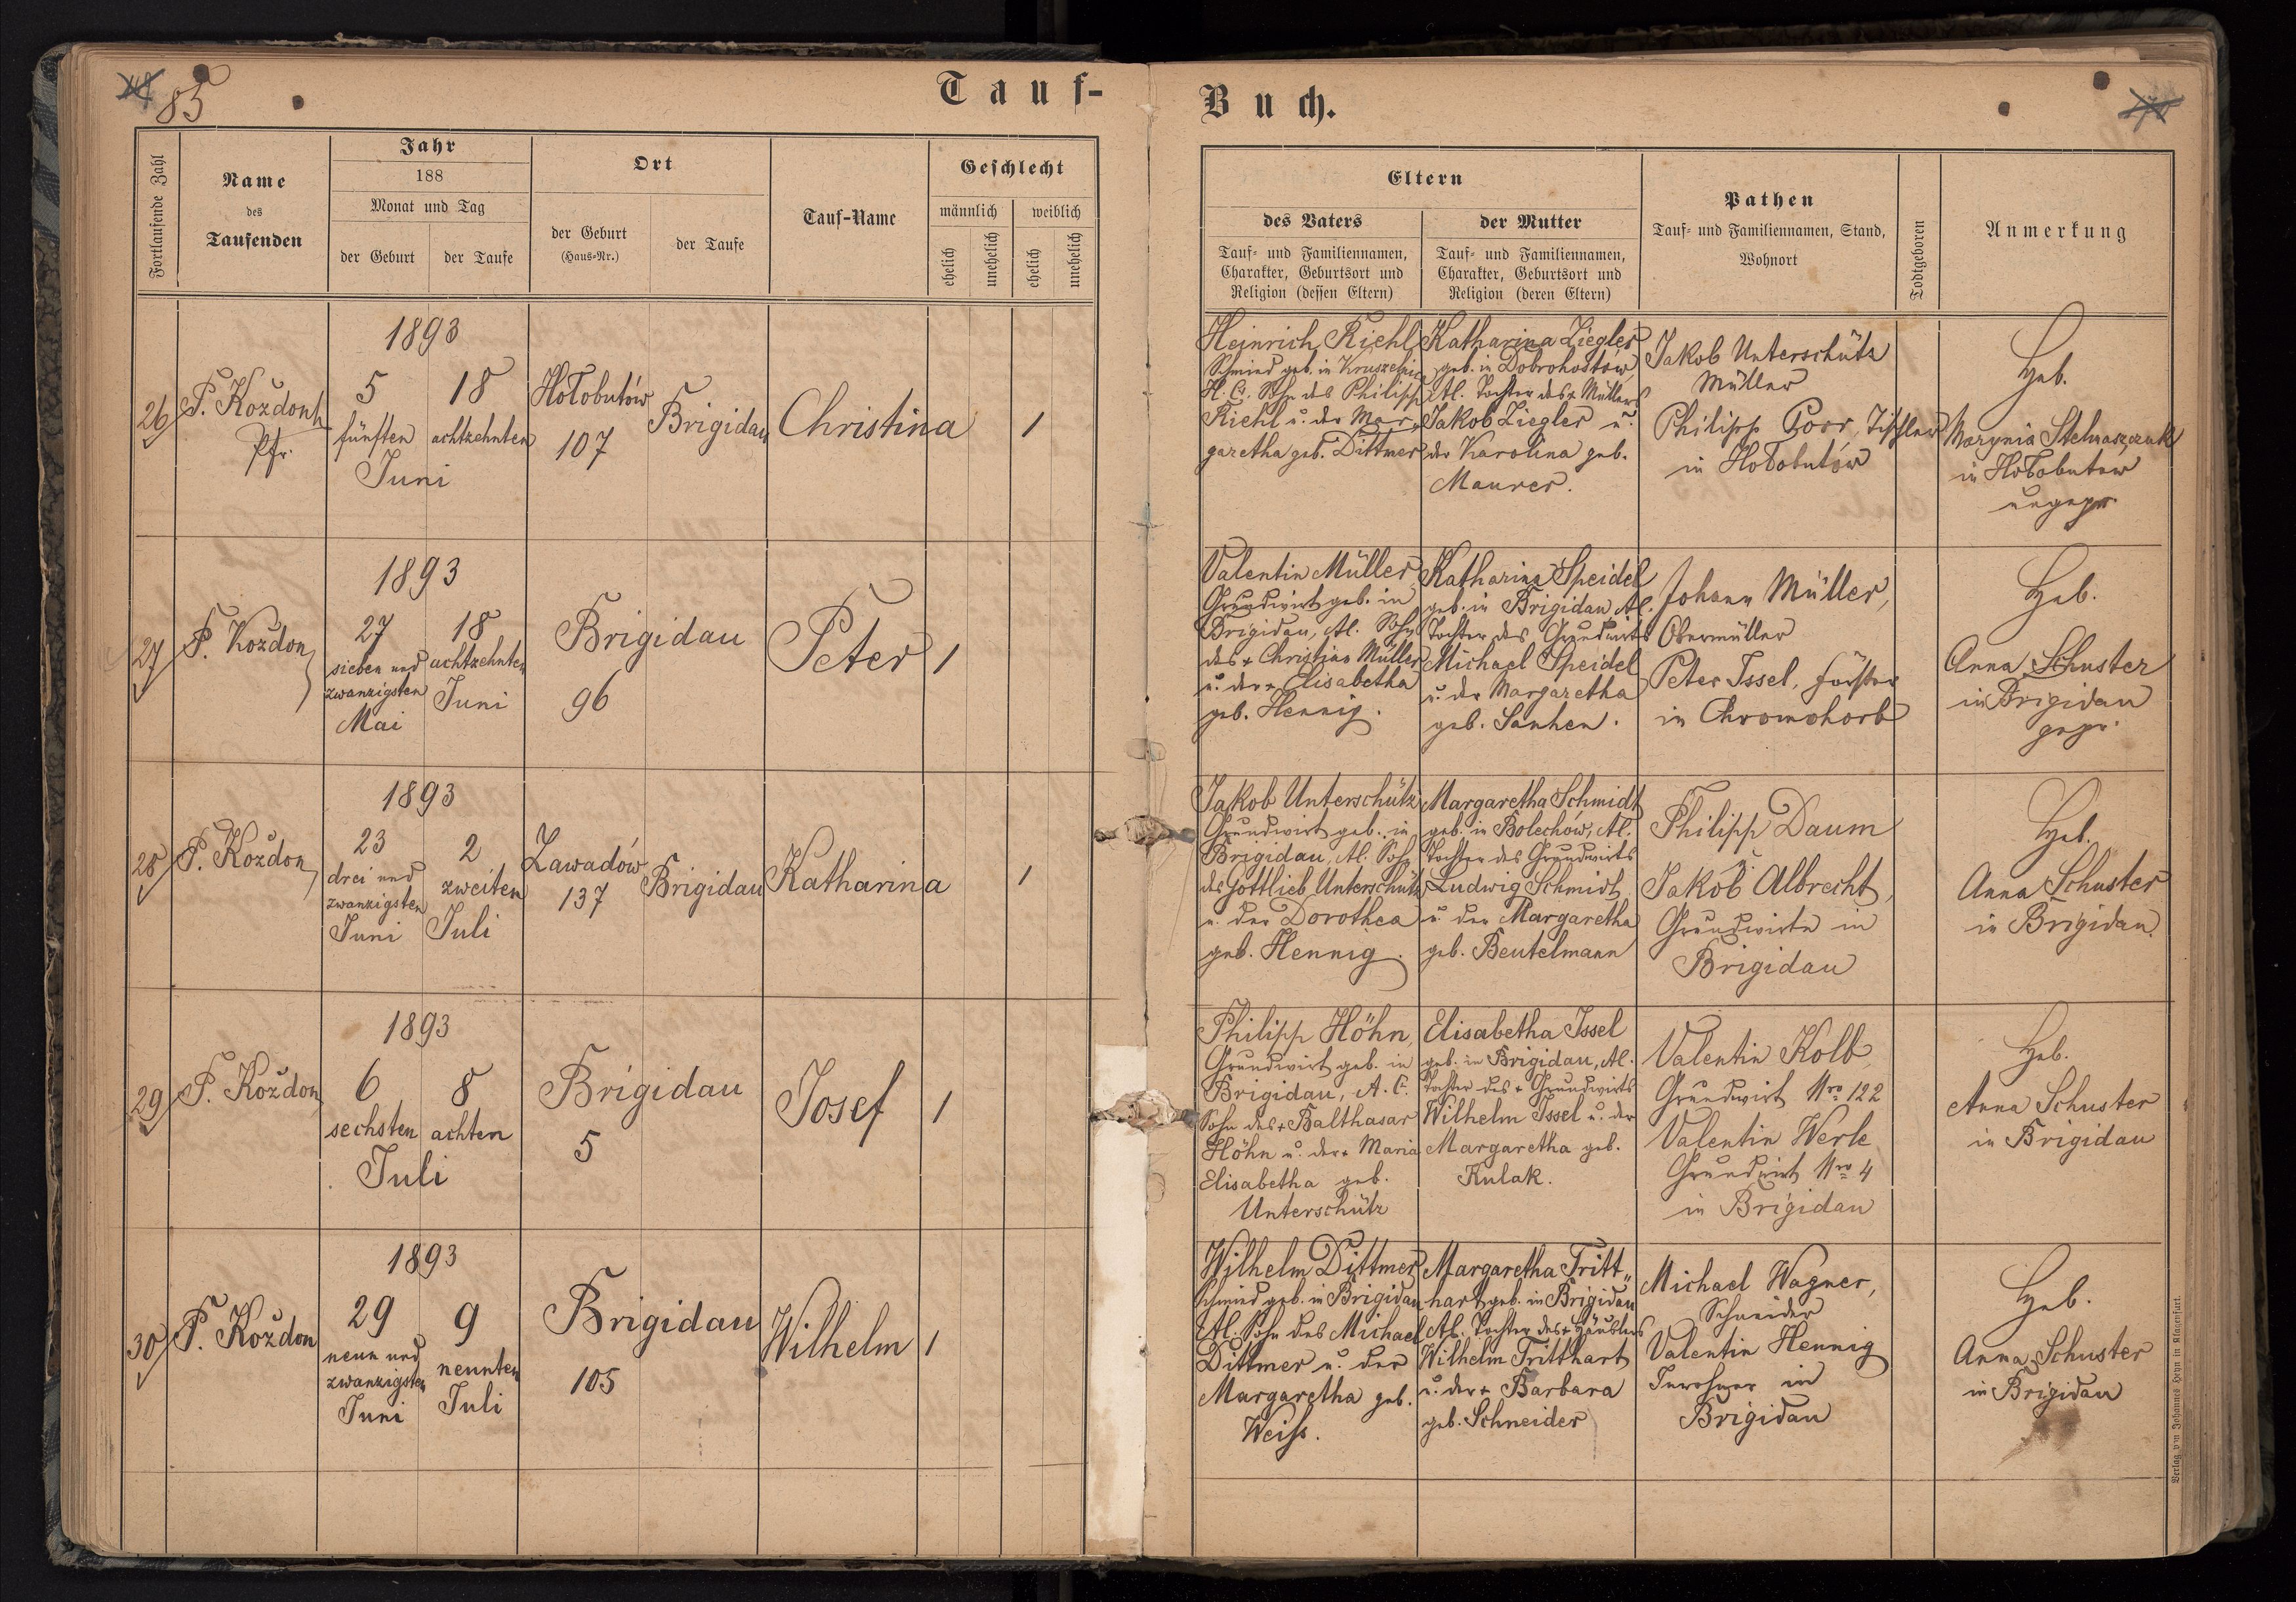 85
Tauf-
Buch.
Fortlaufende Zahl
Name
des
Taufenden
Jahr
188
Monat und Tag
der Geburt
der Taufe
Ort
der Geburt
(Haus-Nr.)
der Taufe
Tauf-Name
Geschlecht
männlich
weiblich
ehelich
unehelich
ehelich
unehelich
Eltern
des Vaters
Tauf- und Familiennamen,
Charakter, Geburtsort und
Religion (dessen Eltern)
der Mutter
Tauf- und Familiennamen,
Charakter, Geburtsort und
Religion (deren Eltern)
Pathen
Tauf- und Familiennamen, Stand,
Wohnort
Todtgeboren
Anmerkung
26
P. Kozdon
Pfr.
1893
5
fünften
18
achtzehnten
Juni
Hołobutów
107
Brigidau
Christina
1
Heinrich Riehl
Schmied geb. in
H. C. Sohn des Philipp
Riehl u. der Mar-
garetha geb. Dittmer
Katharina Ziegler
geb. in Dobrohostów
A. Tochter des + Müllers
Jakob Ziegler u.
der Karolina geb.
Maurer.
Jakob Unterschütz
Müller
Philipp Poor, Tischler
in Hołobutów
Heb.
Marynia
in Hołobutow
ungepr.
27
P. Kozdon
1893
27
sieben und
zwanzigsten
Mai
18
achtzehnten
Juni
Brigidau
96
Peter
1
Valentin Müller,
Grundwirt geb. in
Brigidau, A. Sohn
des + Christian Müller
u. der + Elisabetha
geb. Hennig.
Katharina Speidel
geb. in Brigidau A.
Tochter des Grundwirts
Michael Speidel
u. der Margaretha
geb. Sanhen.
Johann Müller,
Obermüller
Peter Issel, Förster
in Chromohorb
Heb.
Anna Schuster
in Brigidau
gepr.
28
P. Kozdon
1893
23
drei und
zwanzigsten
Juni
2
zweiten
Juli
Zawadów
137
Brigidau
Katharina
1
Jakob Unterschütz
Grundwirt geb. in
Brigidau, A. Sohn
des Gottlieb Unterschütz
u. der Dorothea
geb. Hennig.
Margaretha Schmidt
geb. in Bolechów, A.
Tochter des Grundwirts
Ludwig Schmidt
u. der Margaretha
geb. Beutelmann
Philipp Daum
u.
Jakob Albrecht,
Grundwirte in
Brigidau
Heb.
Anna Schuster
in Brigidau.
29
P. Kozdon
1893
6
sechsten
8
achten
Juli
Brigidau
5
Josef
1
Philipp Höhn,
Grundwirt geb. in
Brigidau, A. C.
Sohn des + Balthasar
Höhn u. der + Maria
Elisabetha geb.
Unterschütz
Elisabetha Issel
geb. in Brigidau, A.
Tochter des + Grundwirts
Wilhelm Issel u. der
Margaretha geb.
Kulak.
Valentin Kolb,
Grundwirt Nro 122
Valentin Werle
Grundwirt Nro 4
in Brigidau
Heb.
Anna Schuster
in Brigidau
30
P. Kozdon
1893
29
neun und
zwanzigsten
Juni
9
neunten
Juli
Brigidau
105
Wilhelm
1
Wilhelm Dittmer
Schmied geb. in Brigidau
A. Sohn des Michael
Dittmer u. der
Margaretha geb.
Weiss.
Margaretha Tritt„
hart geb. in Brigidau
A. Tochter des + Häuslers
Wilhelm Tritthart
u. der + Barbara
geb. Schneider
Michael Wagner,
Schneider
Valentin Hennig
Inwohner in
Brigidau
Heb.
Anna Schuster
in Brigidau
Verlag von Johannes Heyn in Klagenfurt.